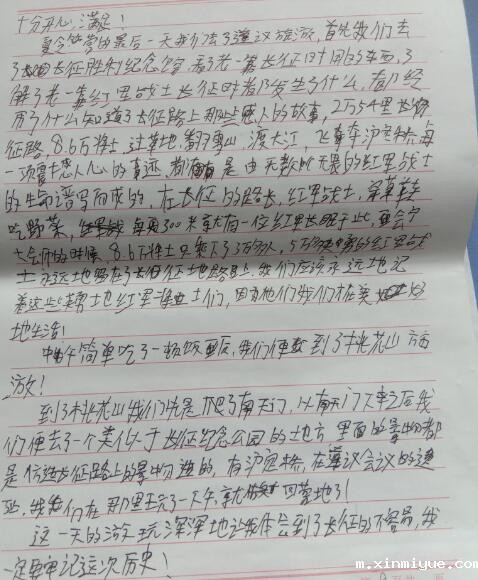 十分开心、满足!
夏令营的最后一天我们去了遵义旅游,首先我们去
了长征胜利纪念馆,看了老一辈长征时用的东西,了
解了老一辈红军战士长征时都发生了什么,都经
用了什么,知道了长征路上那些感人的故事,2万5千里长
征路,8.6万将士,过草地、翻雪山、渡大江,飞夺泸定桥,每
一项震撼人心的事迹,都是由无数无畏的红军战士
的生命谱写而成的,在长征的路长,红军战士,穿草鞋
吃野菜,每300米就有一位红军长眠于此,
大会师的时候,8.6万将士只剩下了3万多人,5万多的红军战
士永远地留在了长征征地路上,我们应该永远地记
着这些红军士们,因为他们我们才在美好
地生活!
中午简单吃了一顿饭后,我们便到了桃花山
游!
到了桃花山我们先是爬了南天门,从南天门下来之后我
们便去了一个类似于长征纪念公园的地方,里面的景物都
是仿造长征路上的景物造的,有泸定桥,遵义会议的遗
址,我们在那里玩了一下午,就回营地了!
这一天的游玩深深地让我体会到了长征的不容易,我
一定要牢记这次历史!
m.xinmiyue.com